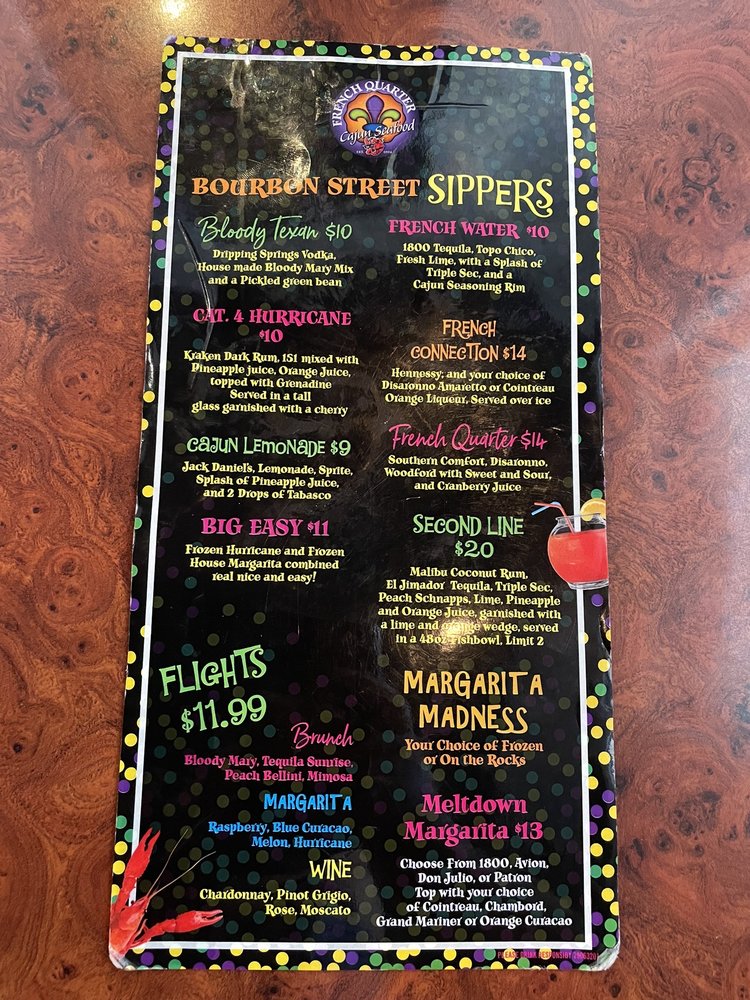 FRENCH QUARTER
Cajun Seafood
BOURBON STREET SIPPERS
Bloody Texan $10
Dripping Springs Vodka,
House made Bloody Mary Mix
and a Pickled green bean
CAT. 4 HURRICANE
$10
Kraken Dark Rum, 151 mixed with
Pineapple juice, Orange Juice,
topped with Grenadine
Served in a tall
glass garnished with a cherry
CAJUN LEMONADE $9
Jack Daniel's, Lemonade, Sprite,
Splash of Pineapple Juice,
and 2 Drops of Tabasco
BIG EASY $11
Frozen Hurricane and Frozen
House Margarita combined
real nice and easy!
FLIGHTS
$11.99
Brunch
Bloody Mary, Tequila Sunrise,
Peach Bellini, Mimosa
MARGARITA
Raspberry, Blue Curacao,
Melon, Hurricane
WINE
Chardonnay, Pinot Grigio,
Rose, Moscato
FRENCH WATER $10
1800 Tequila, Topo Chico,
Fresh Lime, with a Splash of
Triple Sec, and a
Cajun Seasoning Rim
FRENCH
CONNECTION $14
Hennessy, and your choice of
Disaronno Amaretto or Cointreau
Orange Liqueur, Served over ice
French Quarter $14
Southern Comfort, Disaronno,
Woodford with Sweet and Sour,
and Cranberry Juice
SECOND LINE
$20
Malibu Coconut Rum,
El Jimador Tequila, Triple Sec,
Peach Schnapps, Lime, Pineapple
and Orange Juice, garnished with
a lime and orange wedge, served
in a 48oz Fishbowl, Limit 2
MARGARITA
MADNESS
Your Choice of Frozen
or On the Rocks
Meltdown
Margarita $13
Choose From 1800, Avion,
Don Julio, or Patron
Top with your choice
of Cointreau, Chambord,
Grand Mariner or Orange Curacao
PLEASE DRINK RESPONSIBY